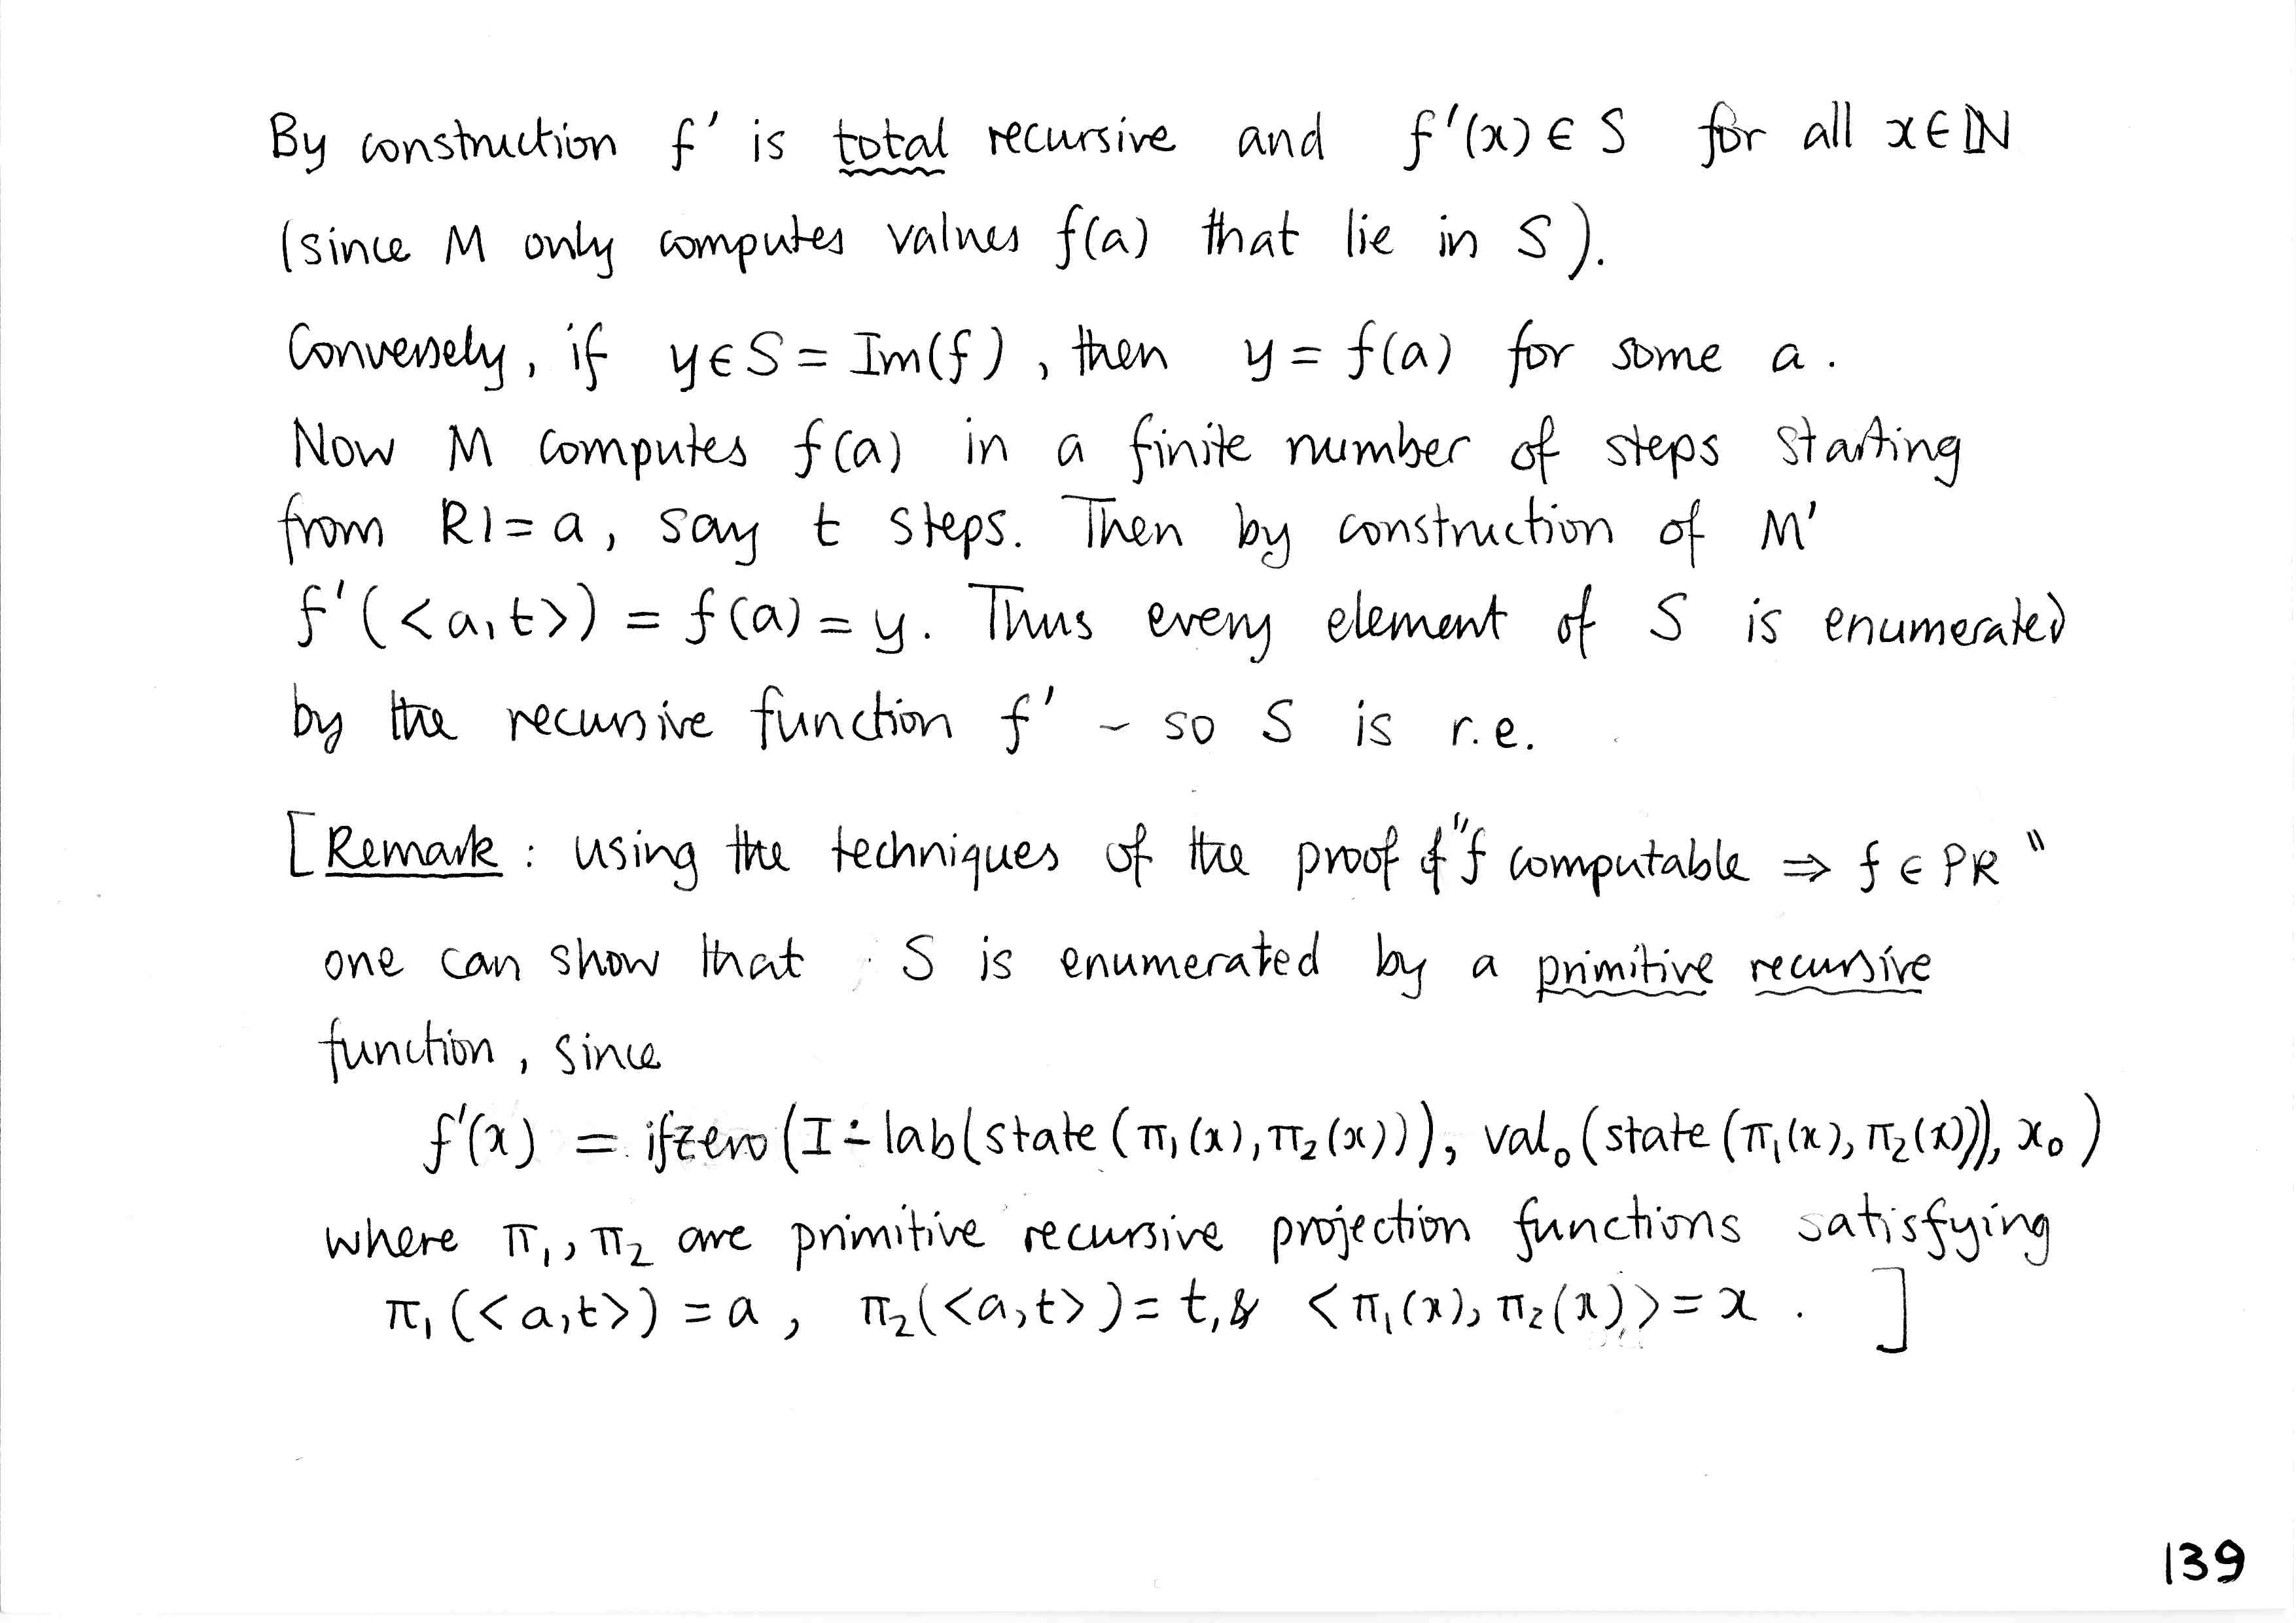 By construction f' is total recursive and f'(x) ∈ S for all x ∈ ℕ
(since M only computes values f(a) that lie in S).
Conversely, if y ∈ S = Im(f), then y = f(a) for some a.
Now M computes f(a) in a finite number of steps starting
from R1 = a, say t steps. Then by construction of M'
f'(<a,t>) = f(a) = y. Thus every element of S is enumerated
by the recursive function f' – so S is r.e.
[Remark: using the techniques of the proof of "f computable ⇒ f ∈ PR"
one can show that S is enumerated by a primitive recursive
function, since
f'(x) = ifzero(I ∸ lab(state(π₁(x), π₂(x))), val₀(state(π₁(x), π₂(x))), x₀)
where π₁, π₂ are primitive recursive projection functions satisfying
π₁(<a,t>) = a, π₂(<a,t>) = t, & <π₁(x), π₂(x)> = x. ]
139